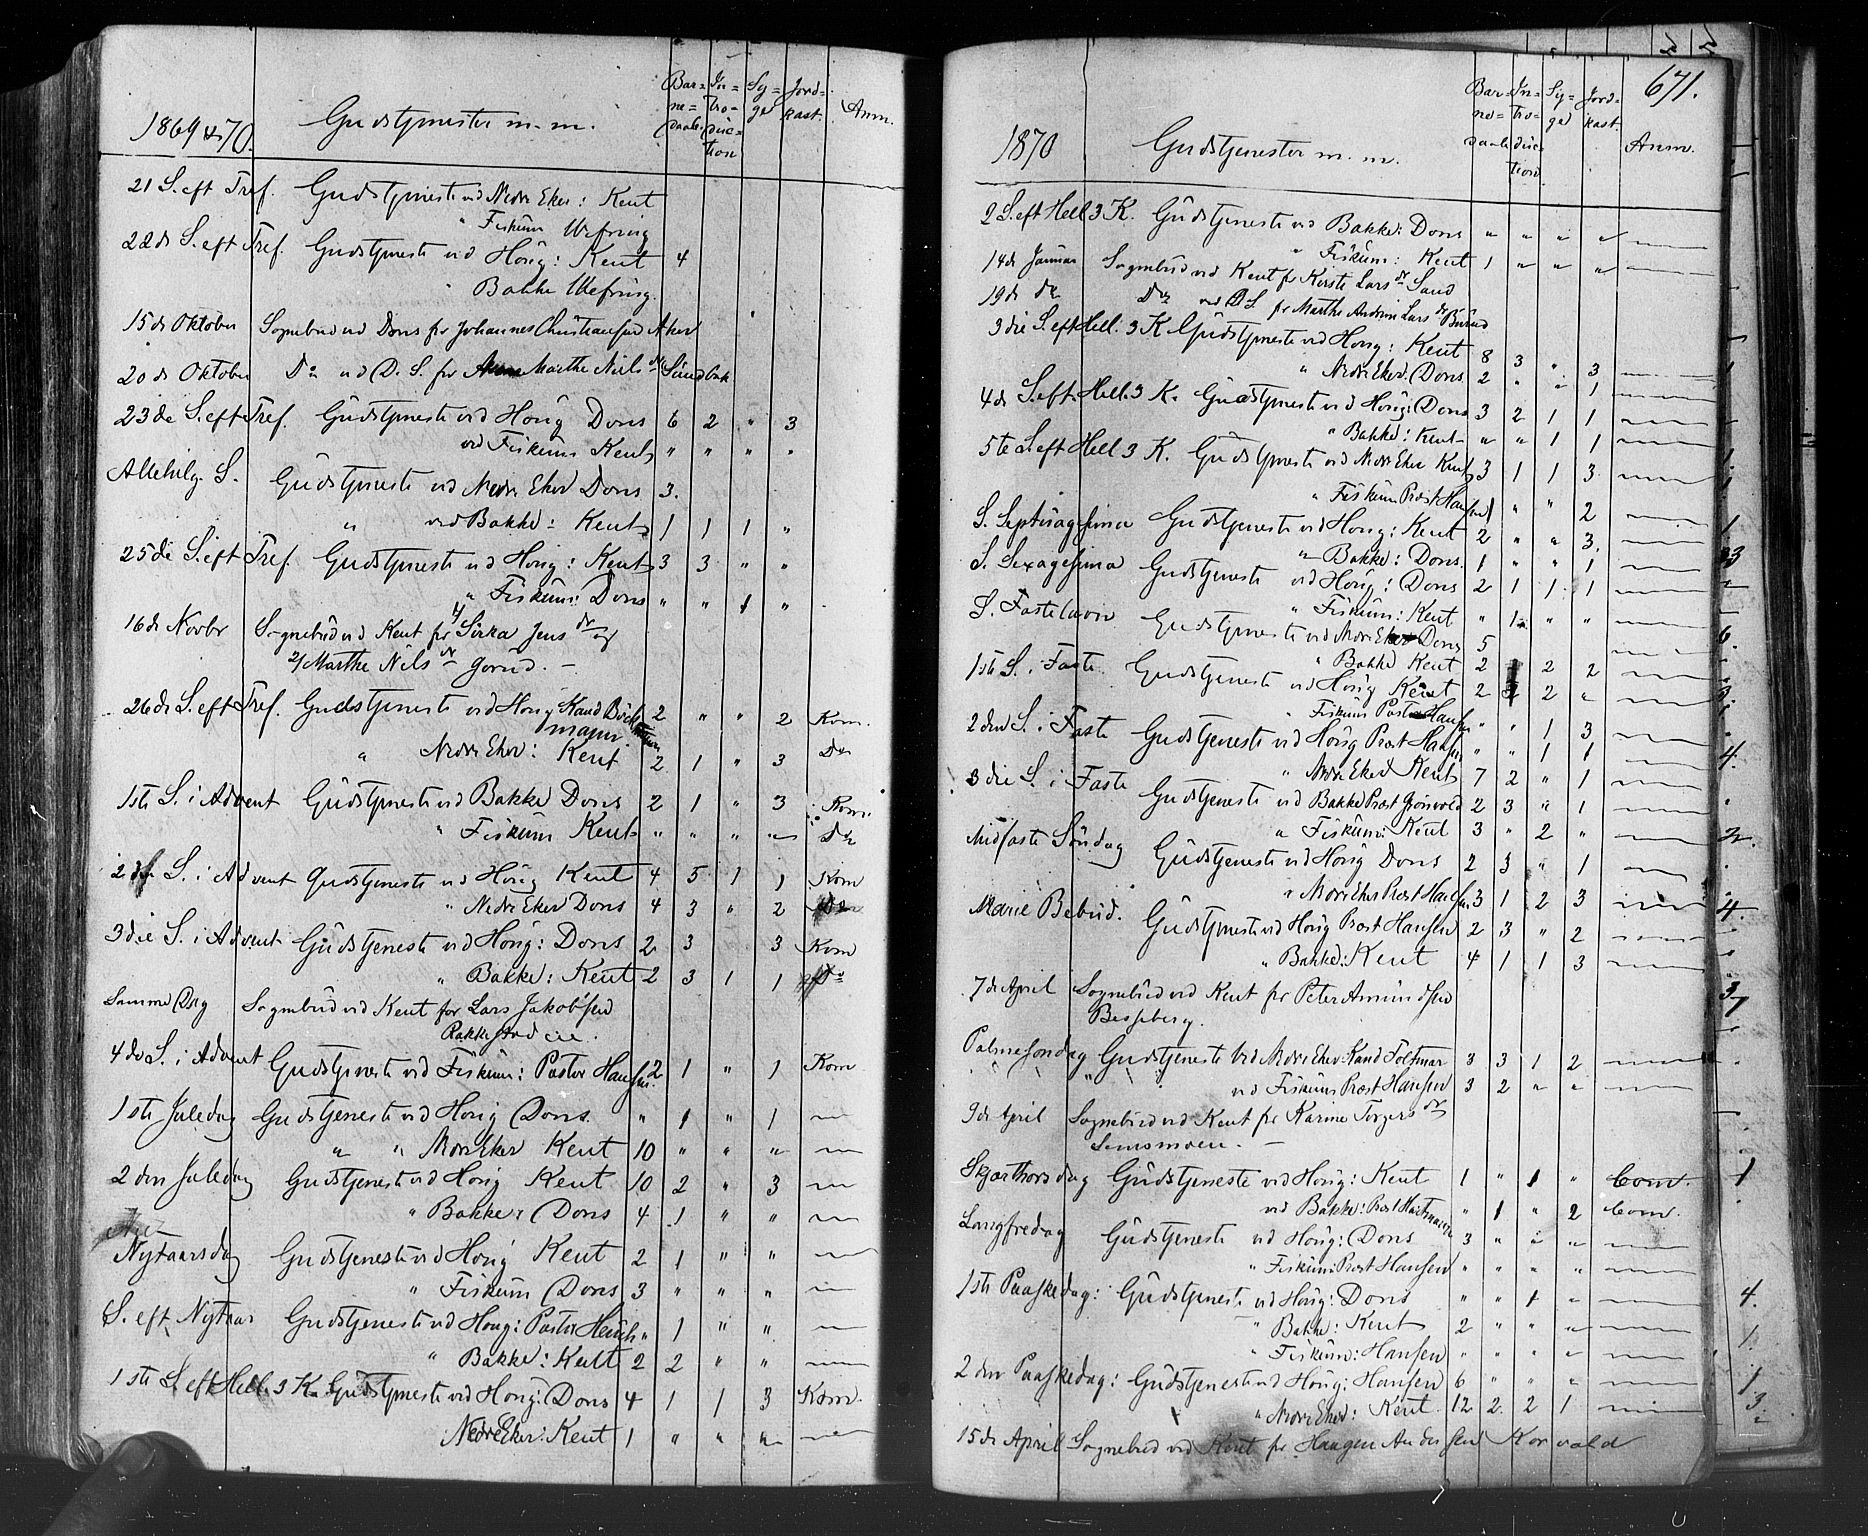 1869 & 70. Gudstjenester m. m. Barnedaab Introduction Syge Jordkast. Anm.
21 S. eft Tref. Gudstjeneste ved Nedre Eker: Kent
" Fiskum Wefring
22de S. eft Tref. Gudstjeneste ved Houg: Kent 4
Bakke Wefring.
15de Oktober Sognebud ved Dons for Johannes Christiansen Aker
20de Oktober Do ved D. S. for Marthe Nilsdr Sundbak
23de S. eft Tref. Gudstjeneste ved Houg Dons 6 2 " 3
ved Fiskum Kent " " " "
Allehelg. S. Gudstjeneste ved Nedre Eker Dons 3.
" ved Bakke: Kent 1 1 1 "
25de S. eft Tref. Gudstjeneste ved Houg: Kent 3 3 " "
" Fiskum: Dons " " 1 "
16de Novbr Sognebud ved Kent for 1/ Sirka Jensdr og
2/ Marthe Nilsdr Gorud. —
26de S. eft Tref. Gudstjeneste ved Houg Kand 2 " " 2 Kom.
" Nedre Eker: Kent 2 1 " 3 Do
1ste S. i Advent Gudstjeneste ved Bakke Dons 2 1 " 3 Kom
" Fiskum Kent " " " " Do
2den S. i Advent Gudstjeneste ved Houg Kent 4 5 1 1 Kom
" Nedre Eker Dons 4 3 " 2 Do
3die S. i Advent Gudstjeneste ved Houg: Dons 2 3 3 Kom
" Bakke: Kent 2 3 1 1 Do
Samme Dag Sognebud ved Kent for Lars Jakobsen
Rakkestadeie.
4de S. i Advent Gudstjeneste ved Fiskum: Pastor Hansen. 2 1 " 1 Kom
1ste Juledag Gudstjeneste ved Houg Dons. " 1 " 1 —
" " Nedre Eker Kent 10 " " " —
2den Juledag Gudstjeneste ved Houg Kent 10 2 " 3 —
" Bakke: Dons 4 1 " " —
Nytaarsdag Gudstjeneste ved Houg Kent 2 1 " " —
" Fiskum Dons 3 " " " —
S. eft Nytaar Gudstjeneste ved Houg: Pastor " 1 " " —
" Bakke: Kent 2 2 " " —
1ste S. eft Hell. 3 K. Gudstjeneste ved Houg: Dons 4 1 1 3 Kom.
Nedre Eker: Kent 1 " " " —
671.
1870 Gudstjenester m. m. Barnedaab Introduction Syge Jordkast. Anm.
2 S. eft Hell 3 K. Gudstjeneste ved Bakke: Dons " " " " —
" Fiskum: Kent 1 " " " —
14de Januar Sognebud ved Kent for Kirste Larsdr Sand
19de do Do ved D. S. for Marthe Andrine Larsdr Burud
3die S. eft Hell. 3 K Gudstjeneste ved Houg: Kent 8 3 " 3 —
" Nedre Eker. Dons 2 " " 1 —
4de S. eft. Hell. 3 K. Gudstjeneste ved Houg: Dons 3 2 1 1 —
" Bakke: Kent " " 1 1 —
5te S. eft Hell 3 K. Gudstjeneste ved Nedre Eker Kent 3 1 1 3 —
" Fiskum Præst Hansen 1 " " 2 —
S. Septuagesima Gudstjeneste ved Houg: Kent 2 " " 3. —
" Bakke: Dons 1 " " 1 —
S. Sexagesima Gudstjeneste ved Houg: Dons 2 1 1 1 —
" Fiskum: Kent " 1 " " —
S. Fastelavn Gudstjeneste ved Nedre Eker Dons 5 —
" Bakke Kent 2 1 2 2 —
1ste S. i Faste Gudstjeneste ved Houg Kent 2 2 2 " —
Fiskum Pastor Hansen " " 1 3 —
2den S. i Faste Gudstjeneste ved Houg Præst Hansen " " 1 1 —
" Nedre Eker Kent 7 2 " 1 —
3die S. i Faste Gudstjeneste ved Bakke Præst Grønvold 2 3 " 1 —
" Fiskum: Kent 3 " 2 " —
Midfaste Søndag Gudstjeneste ved Houg Dons 2 3 " 1 —
" Nedre Eker Præst Hansen. 3 1 2 3 —
Marie Bebud. Gudstjeneste ved Houg Præst Hansen 2 3 " 2 —
" Bakke: Kent 4 1 1 3 —
7de April Sognebud ved Kent for Peter Amundsen
Besseberg.
Palmesøndag Gudstjeneste ved Nedre Eker: Kand Foltmar 3 3 1 2 —
" ved Fiskum Præst Hansen 3 2 " " —
9de April Sognebud ved Kent for Karine Torgersdr
Semsmoen. —
Skjærthorsdag Gudstjeneste ved Houg: Kent 1 " 1 " Com.
ved Bakke: Præst Hartmann " 1 " 2 Com.
Langfredag Gudstjeneste ved Houg: Dons 3 " " " —
" Fiskum: Præst Hansen " " " " —
1ste Paaskedag: Gudstjeneste ved Houg: Dons " " 1 " —
" Bakke: Kent 2 " " " —
" Fiskum: Hansen " " " " —
2den Paaskedag: Gudstjeneste ved Houg: Hansen 6 " " " —
" Nedre Eker: Kent. 12 2 2 1 —
15de April Sognebud ved Kent for Haagen Andersen Korvald